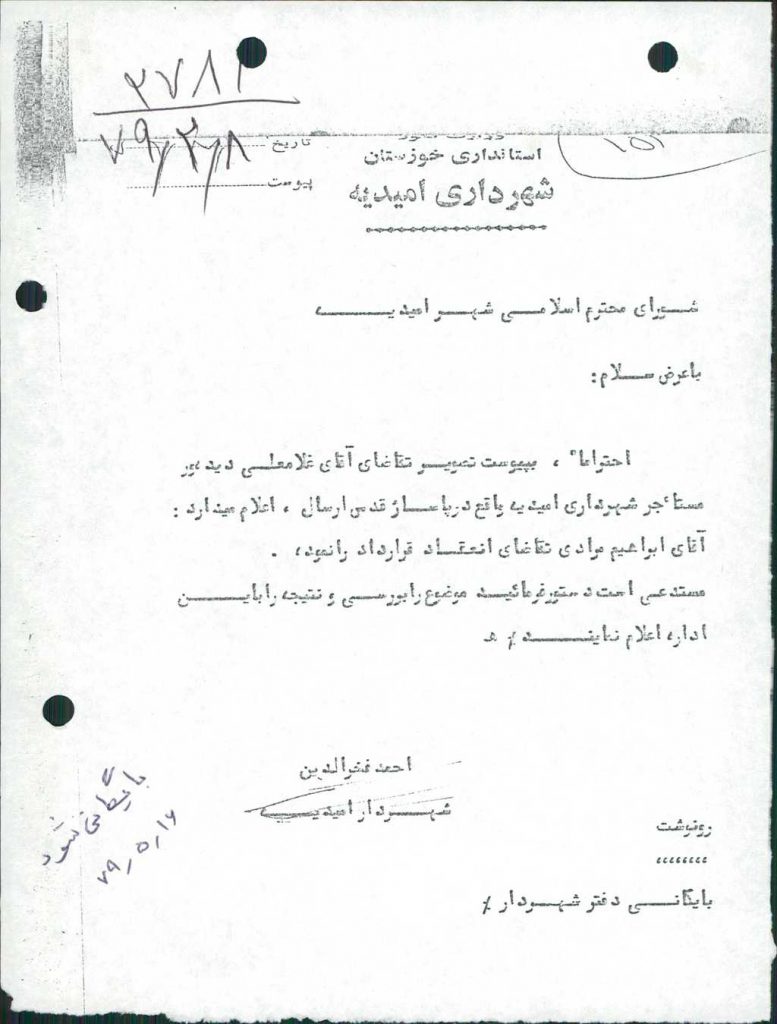 ۲۷۸۱
تاریخ: ۷۹/۳/۸
پیوست
۱۵۲
وزارت کشور
استانداری خوزستان
شهرداری امیدیه
شورای محترم اسلامی شهر امیدیه
باعرض سلام:
احتراما"، بپیوست تصویر تقاضای آقای غلامعلی دیدور
مستأجر شهرداری امیدیه واقع درپاساژ قدس ارسال، اعلام میدارد:
آقای ابراهیم مرادی تقاضای انعقاد قرارداد رانموده.
مستدعی است دستورفرمائید موضوع رابررسی و نتیجه رابایـن
اداره اعلام نمایند./ هـ
احمد فخرالدین
شهردار امیدیه
رونوشت
بایگانی دفتر شهردار ./
بایگانی شود
۷۹/۵/۱۶